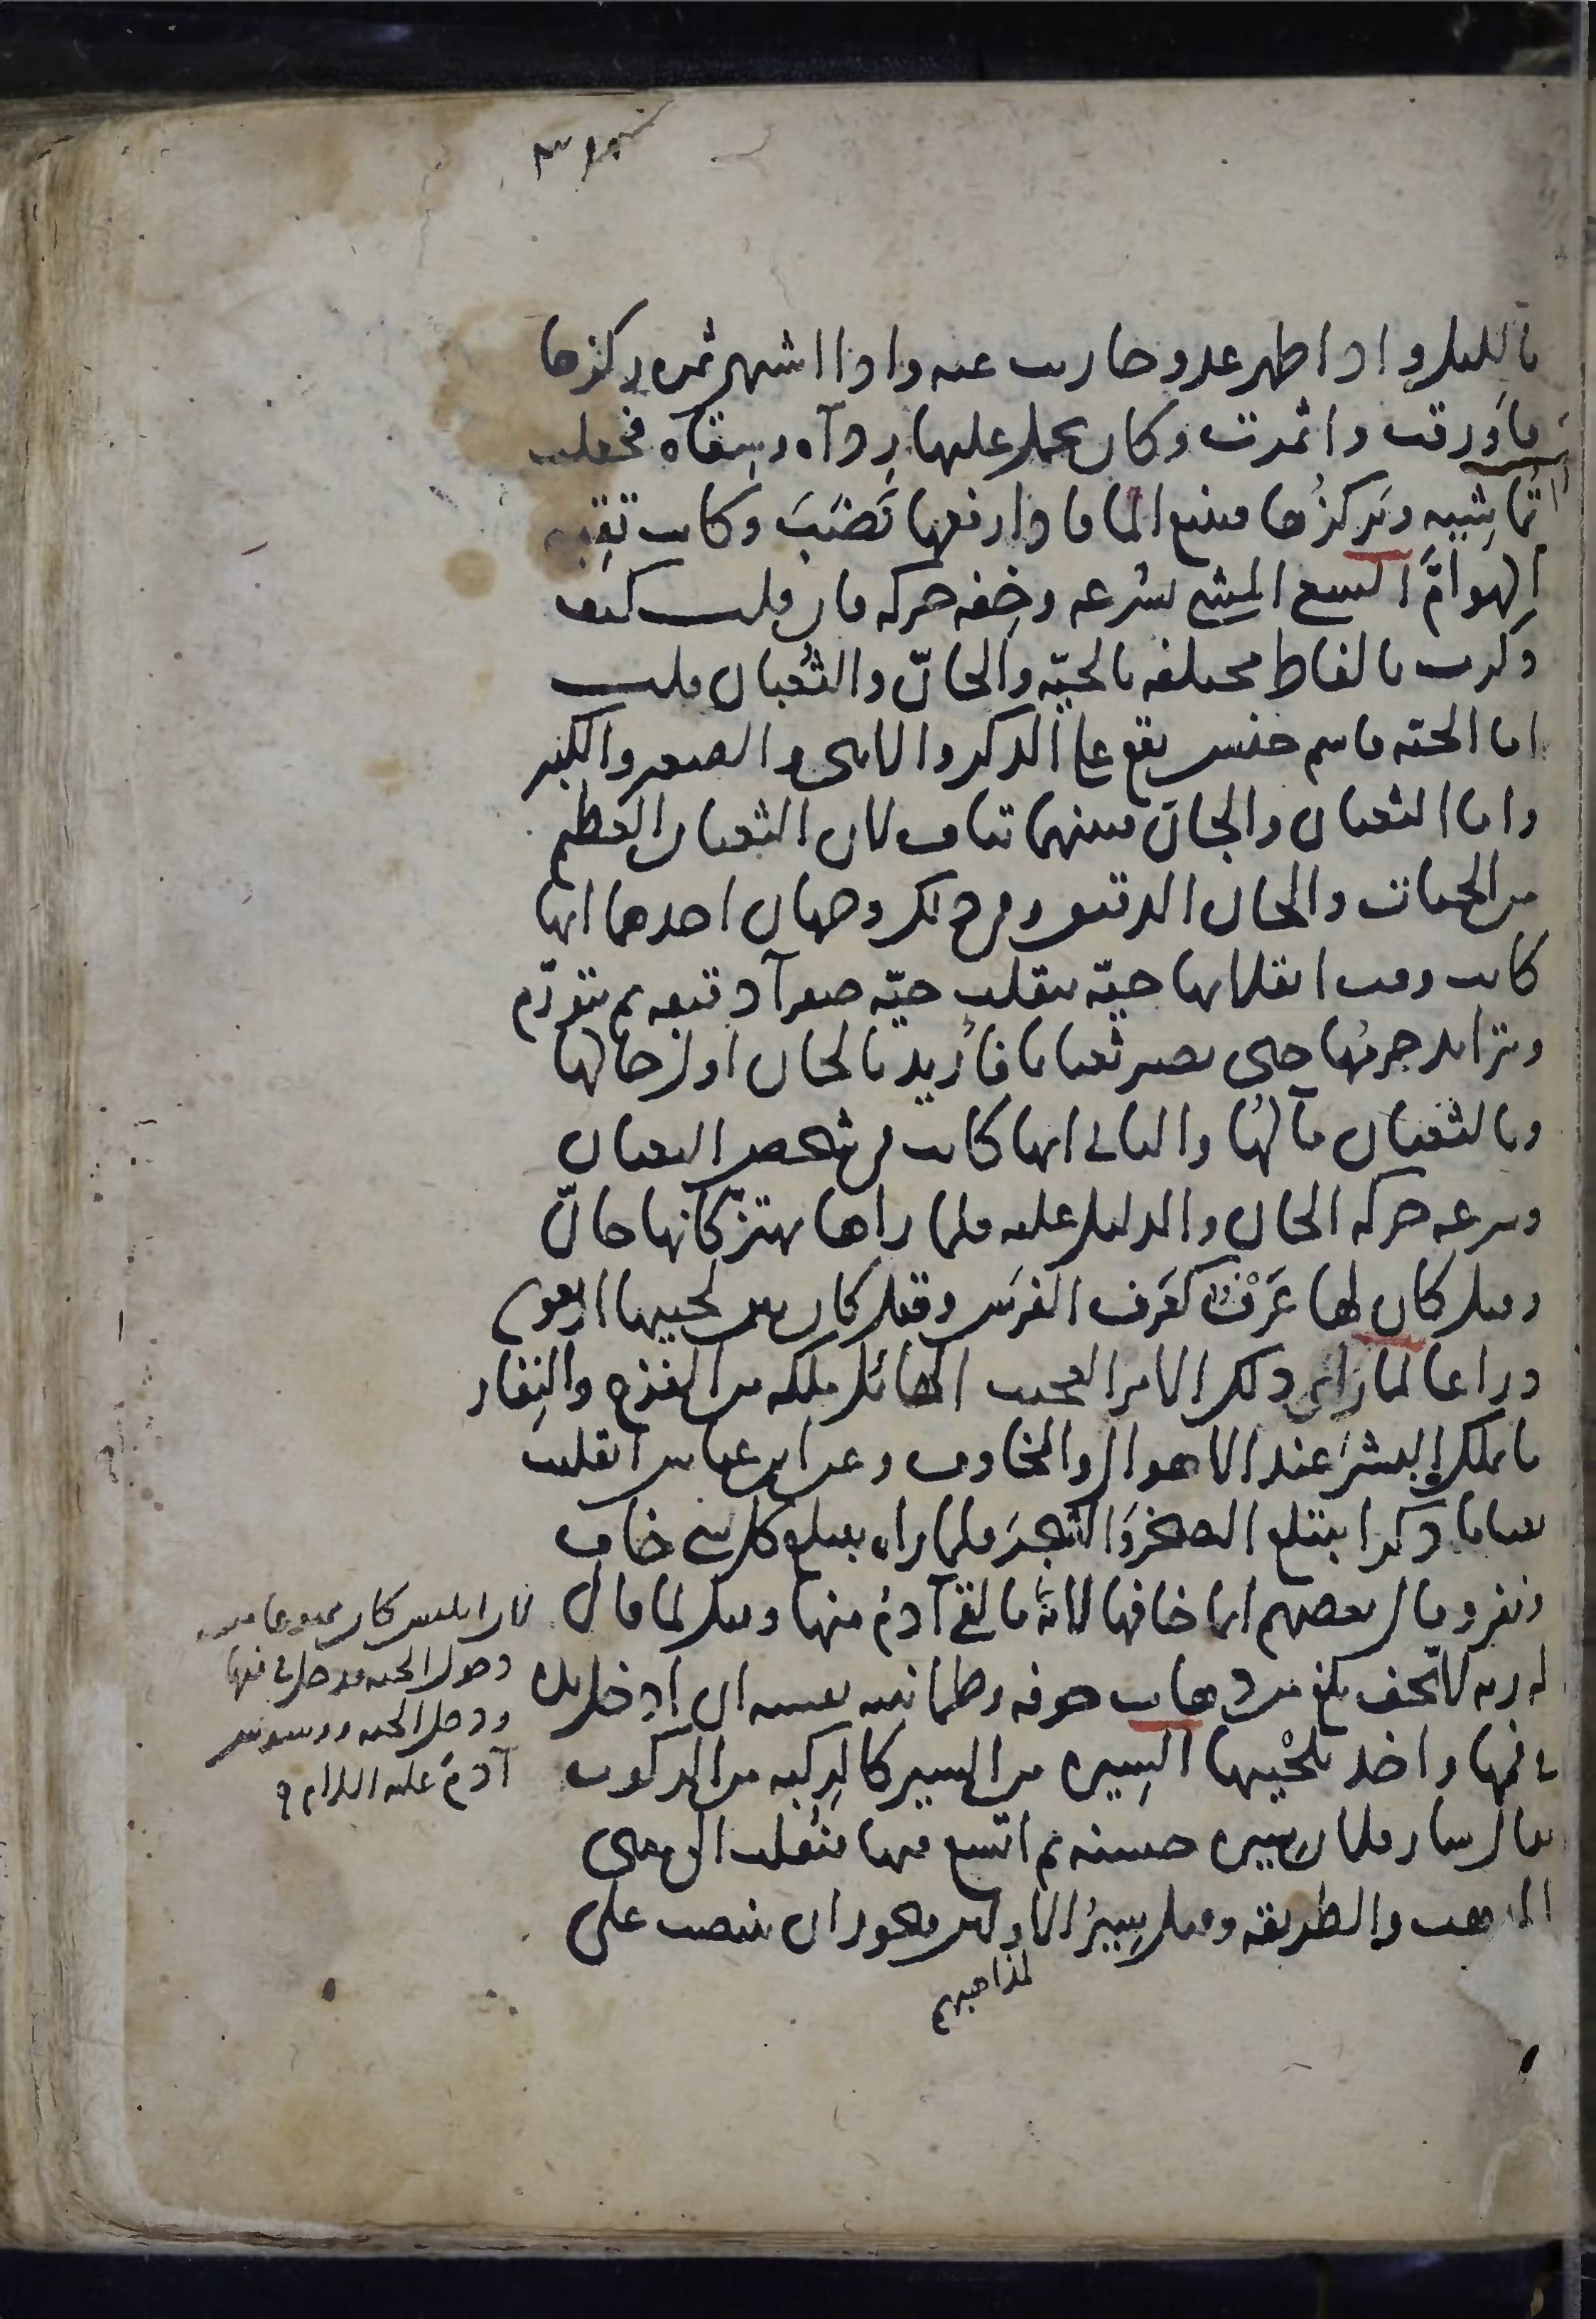 بالليل واذا ظهر عدو حاربت عنه واذا اشتهى ثمره ركزها
فاورقت واثمرت وكان يحمل عليها زاده وسقاه فجعلت
تماشيه ويركزها فينبع الما فاذا رفعها نضب وكانت تقيه
الهوام السعي المشي بسرعه وخفه حركه فان قلت كيف
ذكرت بالفاظ مختلفه بالحيّه والجانّ والثعبان قلت
اما الحيه فاسم جنس يقع على الذكر والانثى والصغير والكبير
واما الثعبان والجانّ فبينهما تناف لان الثعبان العظيم
من الحيات والجان الدقيق وفي ذلك وجهان احدهما انها
كانت وقت انقلابها حيّه تنقلب حيّه صفرآ دقيقه ثم تتورّم
ويتزايد جرمها حتى تصير ثعبانا فاريد بالجان اول حالها
وبالثعبان مآلها والثاني انها كانت في شخص الثعبان
وسرعه حركه الجان والدليل عليه فلما راها تهتزّ كانها جانّ
وقيل كان لها عَرْف كعرف الفرس وقيل كان بين لحييها اربعون
ذراعا لما راى ذلك الامر العجيب الهائل ملكه من الفزع والنِفار
ما يملك البشر عند الاهوال والمخاوف وعن ابن عباس انقلبت
ثعبانا ذكرا يبتلع الصخر والشجر فلما راه يبتلع كل شي خاف
ونفر وقال بعضهم انما خافها لانه ما لقي آدم منها وقيل لما قال
له ربه لا تخف بلغ من ذهاب خوفه وطمانينه نفسه ان ادخل يده
في فمها واخذ بلحْييها السِيره من السير كالرِكبه من الركوب
يقال سار فلان سِيره حسنه ثم اتسع فيها فنقلت الى معنى
المذهب والطريقه وقيل سِيَرُ الاولين فيجوز ان ينتصب على
لمذاهبهم
لان ابليس كان ممنوعا من
دخول الجنه فدخل في فمها
ودخل الجنه ووسوس
آدم عليه السلام